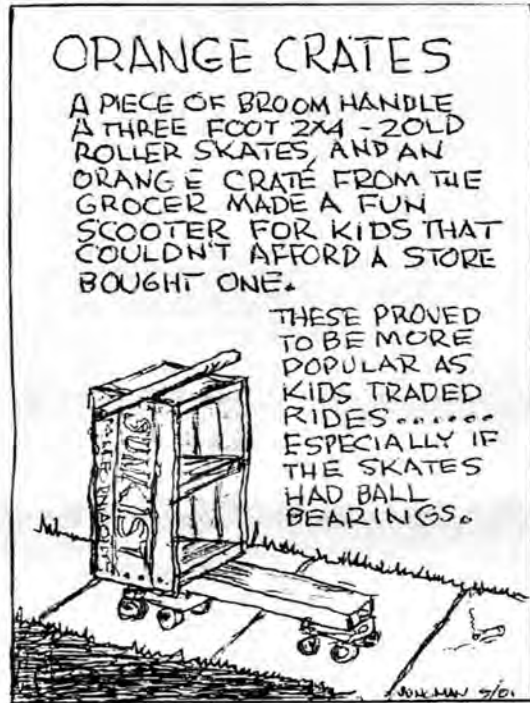 ORANGE CRATES
A PIECE OF BROOM HANDLE
A THREE FOOT 2X4 - 2 OLD
ROLLER SKATES, AND AN
ORANGE CRATE FROM THE
GROCER MADE A FUN
SCOOTER FOR KIDS THAT
COULDN'T AFFORD A STORE
BOUGHT ONE.
THESE PROVED
TO BE MORE
POPULAR AS
KIDS TRADED
RIDES......
ESPECIALLY IF
THE SKATES
HAD BALL
BEARINGS.
SUNKIST
5/01